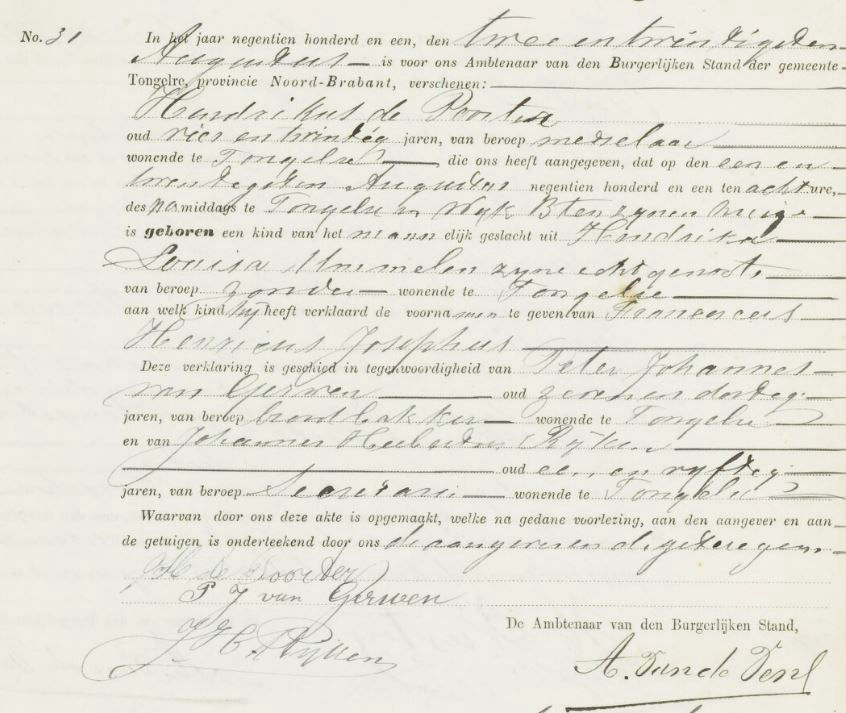 No. 31 In het jaar negentien honderd en een, den twee en twintigsten
Augustus is voor ons Ambtenaar van den Burgerlijken Stand der gemeente
Tongelre, provincie Noord-Brabant, verschenen:
Hendrikus de Poorter
oud vier en twintig jaren, van beroep metselaar
wonende te Tongelre, die ons heeft aangegeven, dat op den een en
twentigsten Augustus negentien honderd en een ten acht ure,
des na middags te Tongelre in Wijk B ten zijnen huize
is geboren een kind van het mann elijk geslacht uit Hendrika
Louisa Ummelen zijne echtgenoote
van beroep zonder wonende te Tongelre
aan welk kind hij heeft verklaard de voorna men te geven van Franciscus
Henricus Josephus
Deze verklaring is geschied in tegenwoordigheid van Peter Johannes
van Gerwen oud zeven en dertig
jaren, van beroep broodbakker wonende te Tongelre
en van Johannes Hubertus Rijken
oud een en vijftig
jaren, van beroep Secretaris wonende te Tongelre
Waarvan door ons deze akte is opgemaakt, welke na gedane voorlezing, aan den aangever en aan
de getuigen is onderteekend door ons de aangever en de getuigen.
H de Poorter
P J van Gerwen
De Ambtenaar van den Burgerlijken Stand,
J H Rijken
A. van de Ven